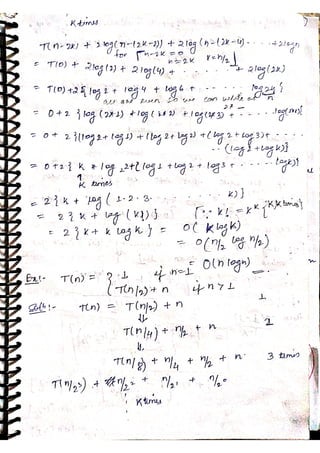 K times
T(n-2k) + 2log(n-(2k-2)) + 2log(n-(2k-4)) + ..... + 2logn
for n-2k=0
n=2k k=n/2
= T(0) + 2log(2) + 2log(4) + ...... + 2log(2k)
= T(0)+2{log2 + log4 + log6 + ..... log2k}
All are even so we can write as
= 0+2 {log(2×1) + log(2×2) + log(2×3) + ..... log(2×k)}
= 0 + 2 {(log2+log1) + (log2+log2) + (log2+log3)+ ....
.. (log2+logk)}
= 0+2 { k * log2 2+{log1 + log2 + log3 + ..... logk)}
K times
= 2 { k + log (1·2·3. .... k)}
= 2 { k + log (k!)} {∵ k! = k^k {K×k times}
= 2 { k + k log k } = O(k log k)
= O(n/2 log n/2)
= O(n logn)
Ex:- T(n) = { 1 if n=1
T(n/2)+n if n>1
Soln:- T(n) = T(n/2) + n 1
⇓
T(n/4) + n/2 + n 2
⇓
T(n/8) + n/4 + n/2 + n 3 times
T(n/2³) + n/2² + n/2¹ + n/2⁰
K times